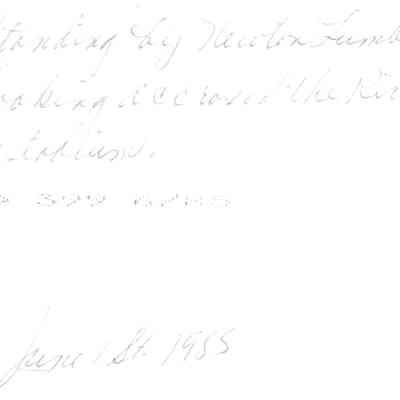 tanding by Newton Lumb
oking accrossed the Riv
stadium.
June 1 St. 1955